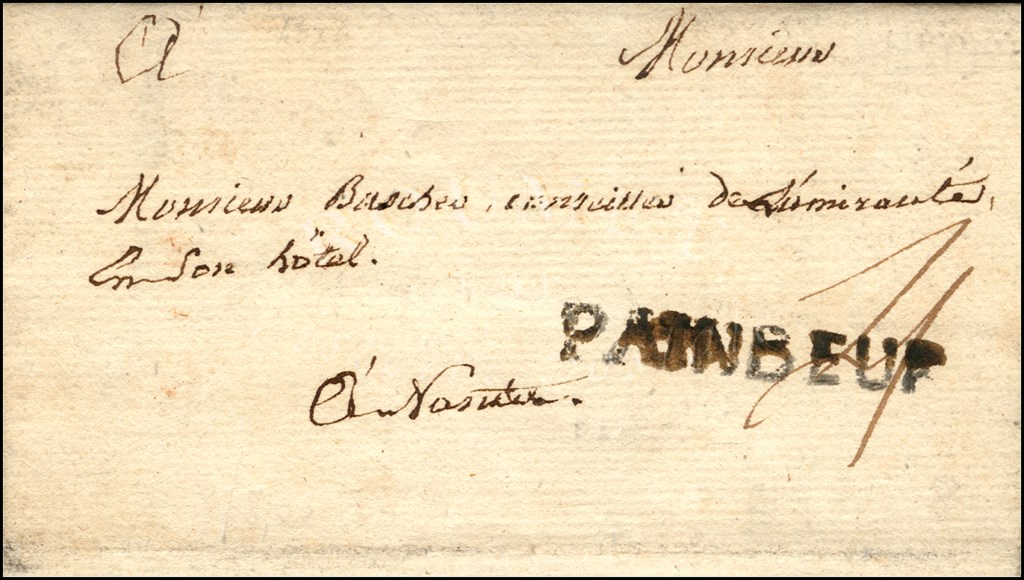 A Monsieur
Monsieur Bascher, conseiller de L'amirauté,
En Son hôtel.
PAINBEUF
A Nantes.